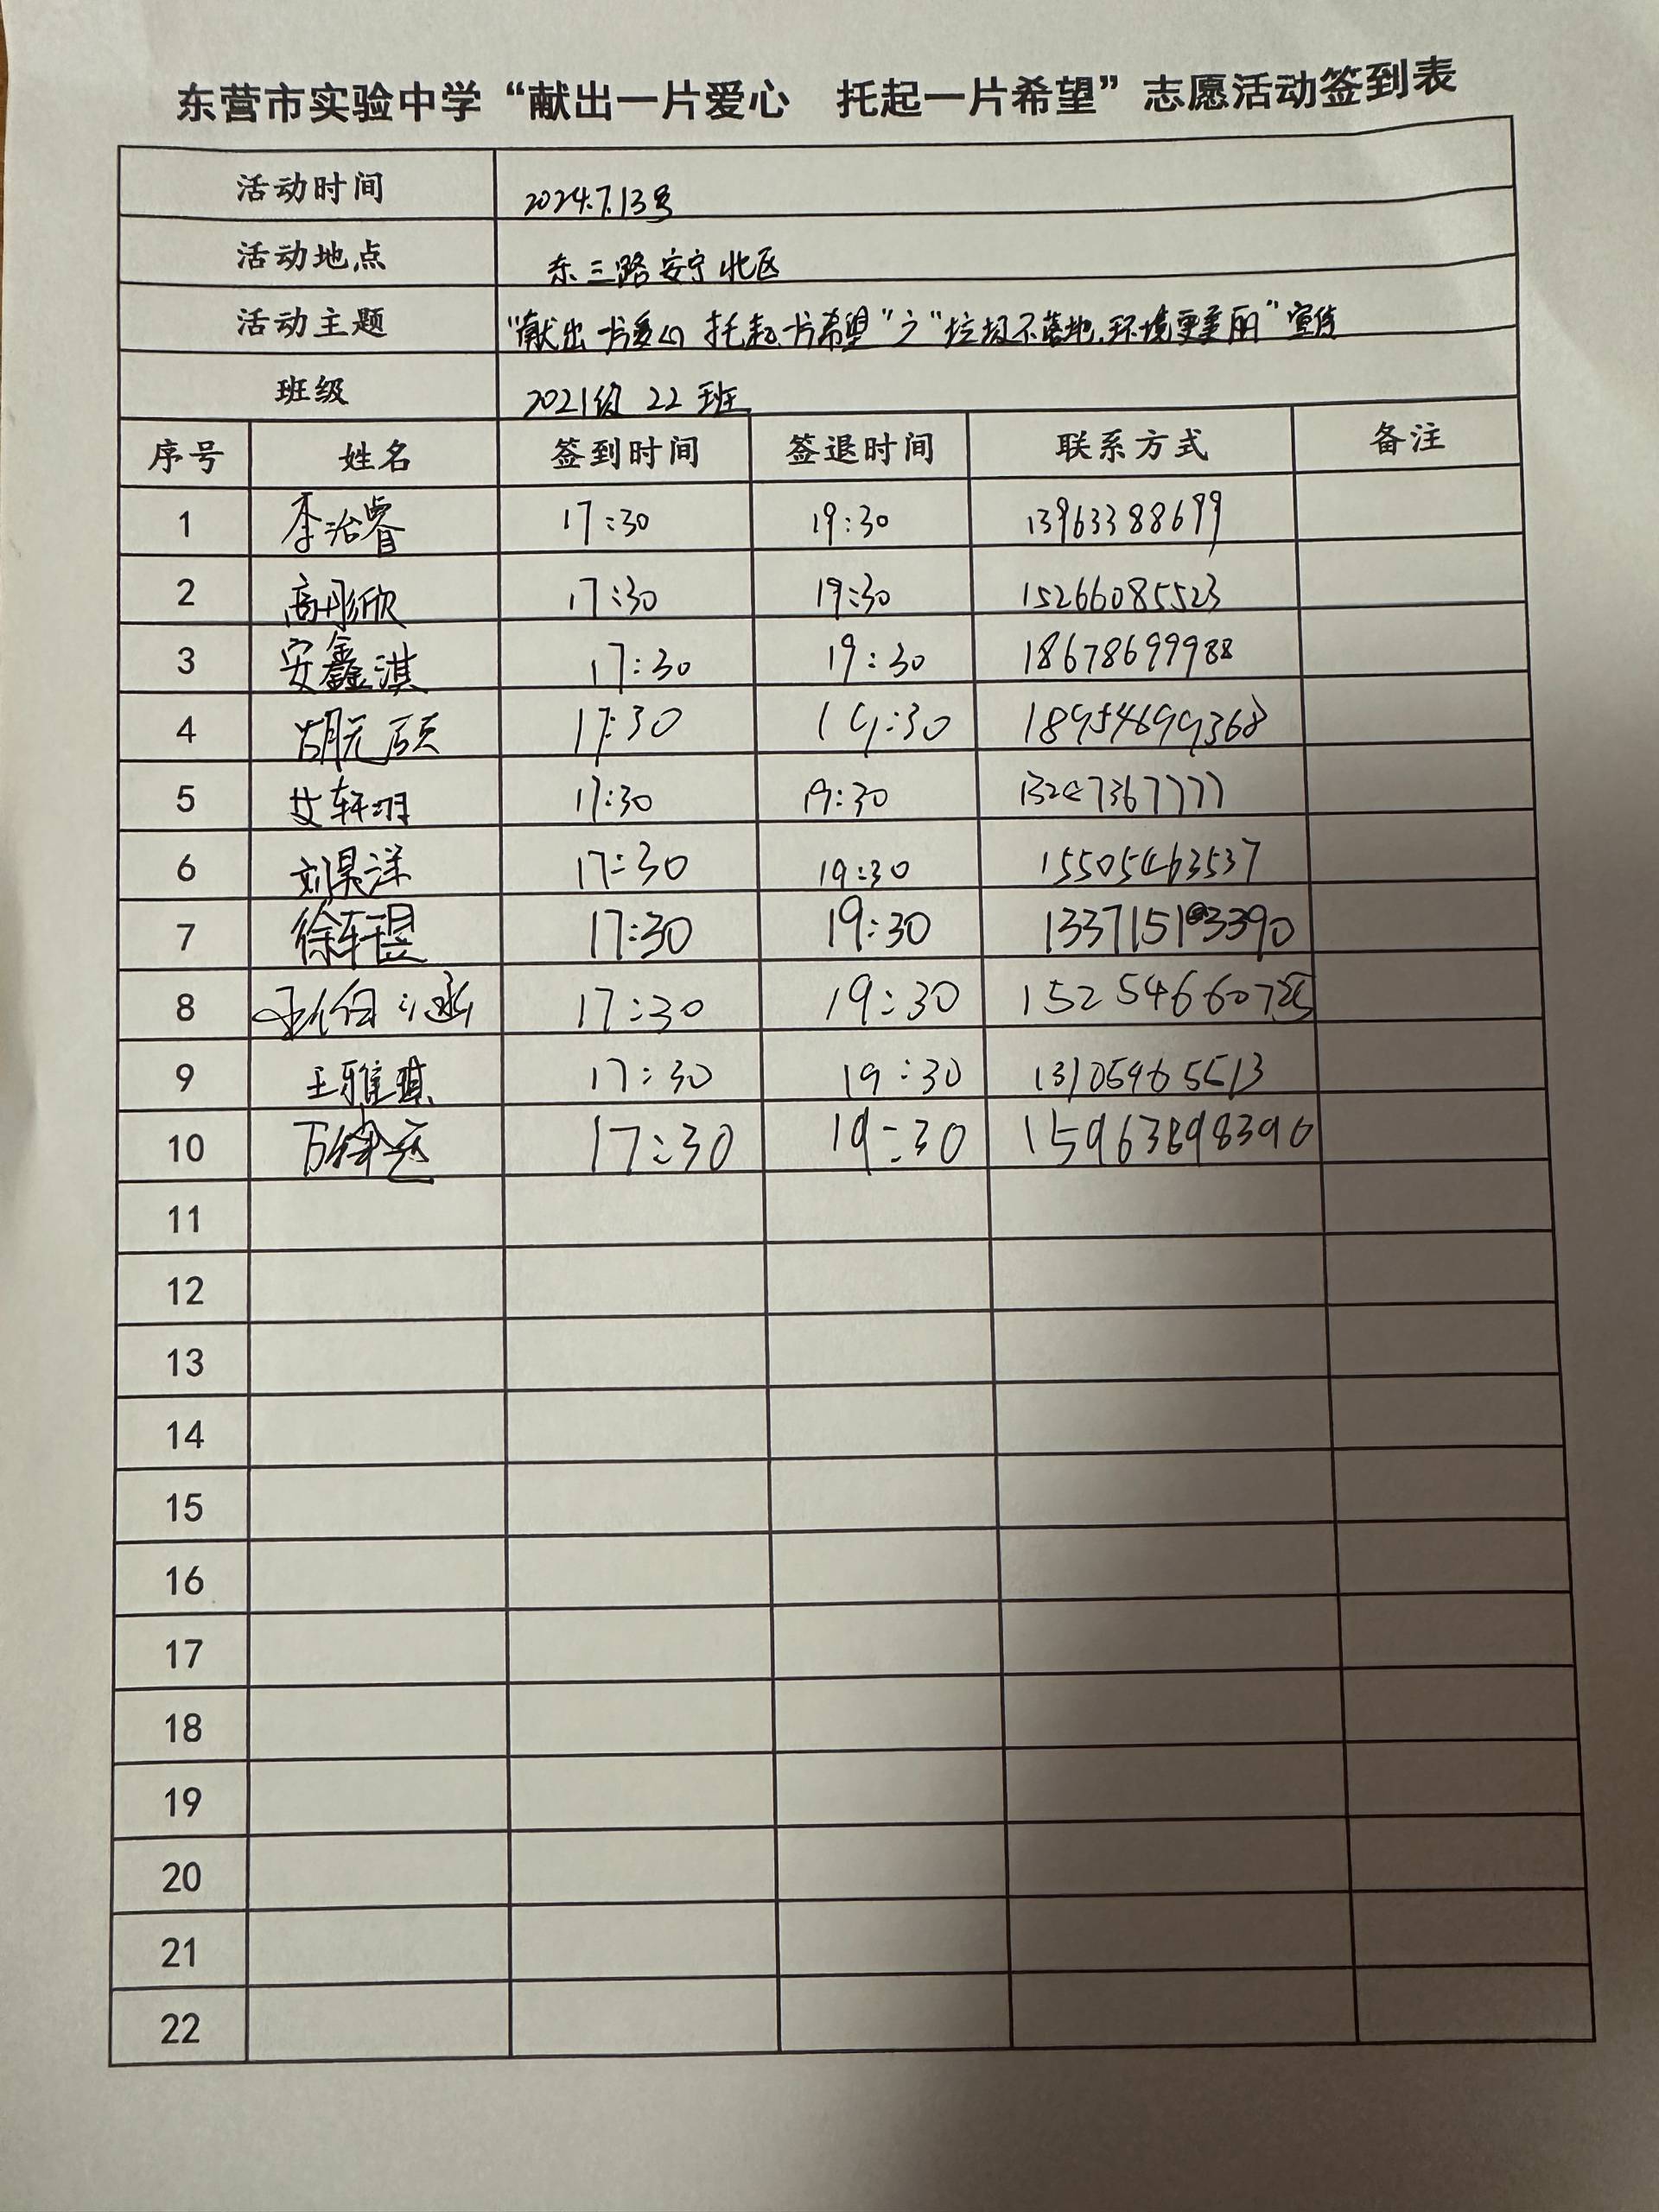 东营市实验中学“献出一片爱心 托起一片希望”志愿活动签到表
活动时间 2024.7.13号
活动地点 东三路安宁北区
活动主题 “献出一片爱心 托起一片希望”之“垃圾不落地,环境更美丽”宣传
班级 2021级 22班
序号 姓名 签到时间 签退时间 联系方式 备注
1 李治睿 17:30 19:30 13963388699
2 高彤欣 17:30 19:30 15266085523
3 安鑫淇 17:30 19:30 18678699988
4 胡元硕 17:30 19:30 18954699368
5 艾轩羽 17:30 19:30
6 刘昊洋 17:30 19:30 15505463537
7 徐轩昱 17:30 19:30 13371513390
8 17:30 19:30
9 王雅琪 17:30 19:30 13105465513
10 17:30 19:30 15963898390
11
12
13
14
15
16
17
18
19
20
21
22